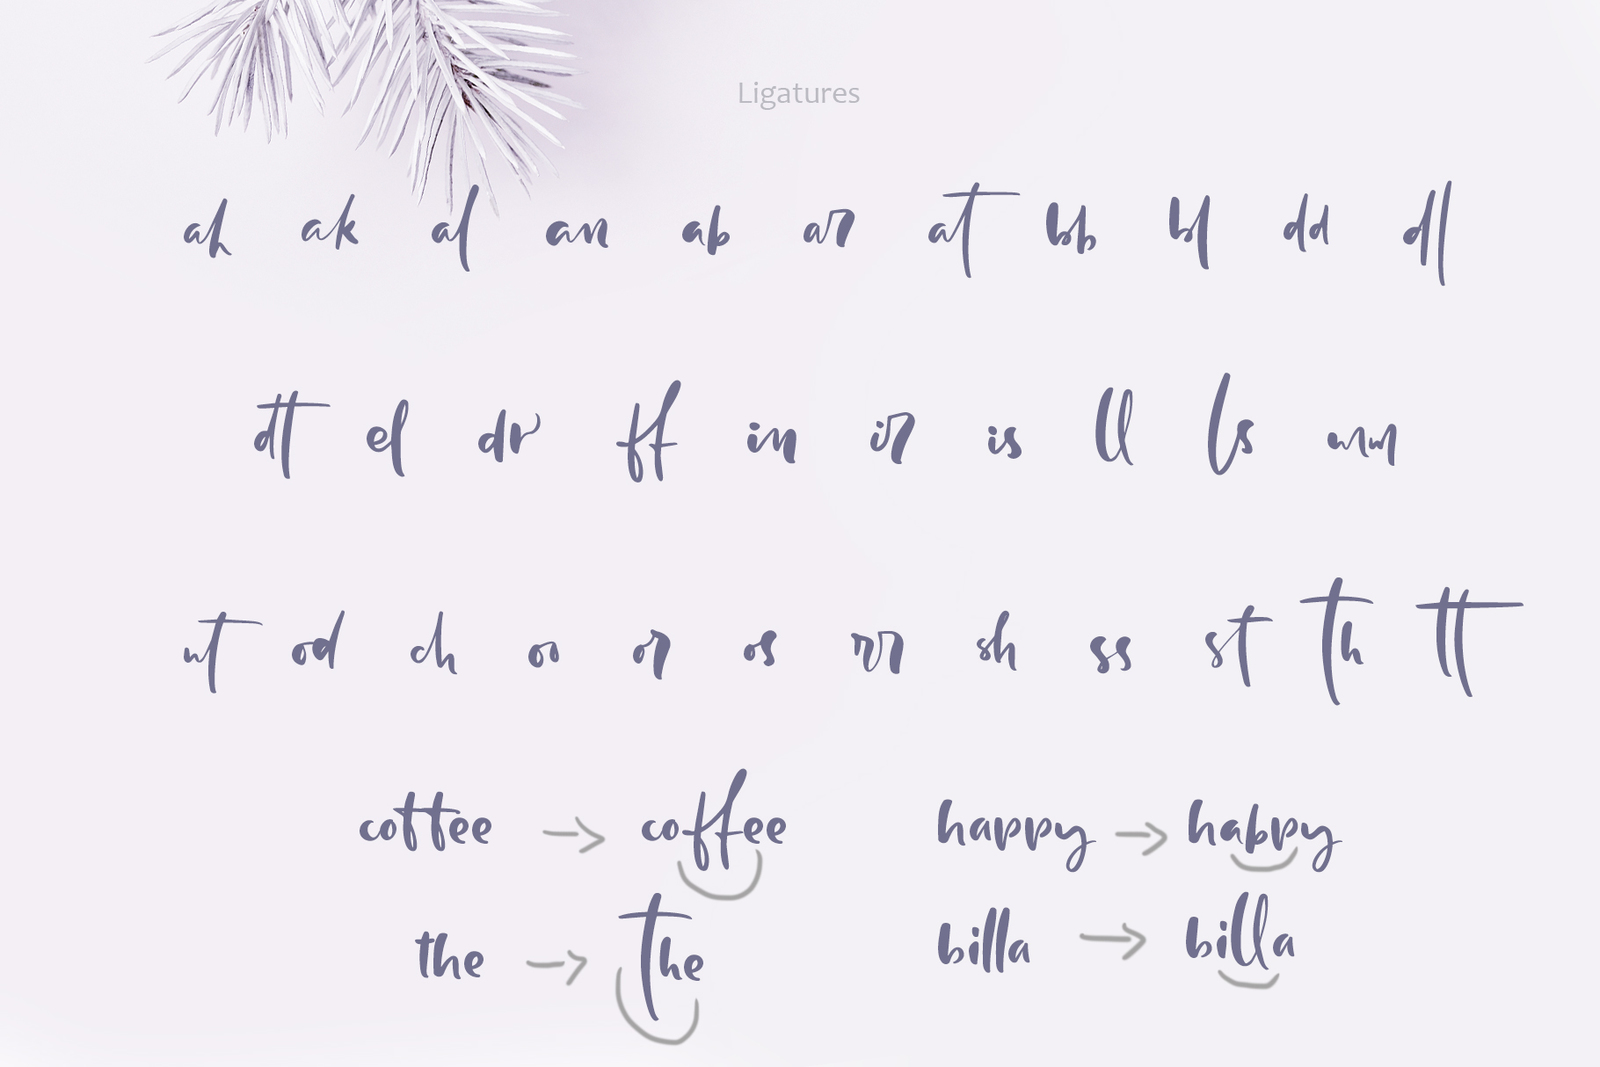 Ligatures
ah ak al an ab ar at bb bl dd dl
dt el dr ff in ir is ll ls mm
nt od ch oo or os rr sh ss st th tt
cottee → coffee happy → habpy
the → the billa → billa